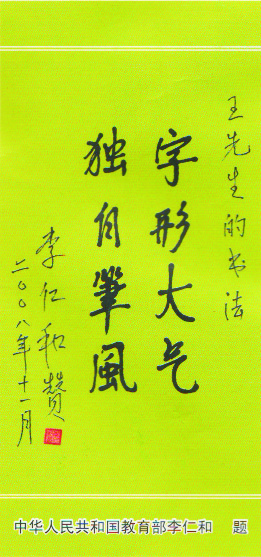 王先生的书法
字形大气
独自筆風
李仁和赞
二〇〇八年十一月
中华人民共和国教育部李仁和 题